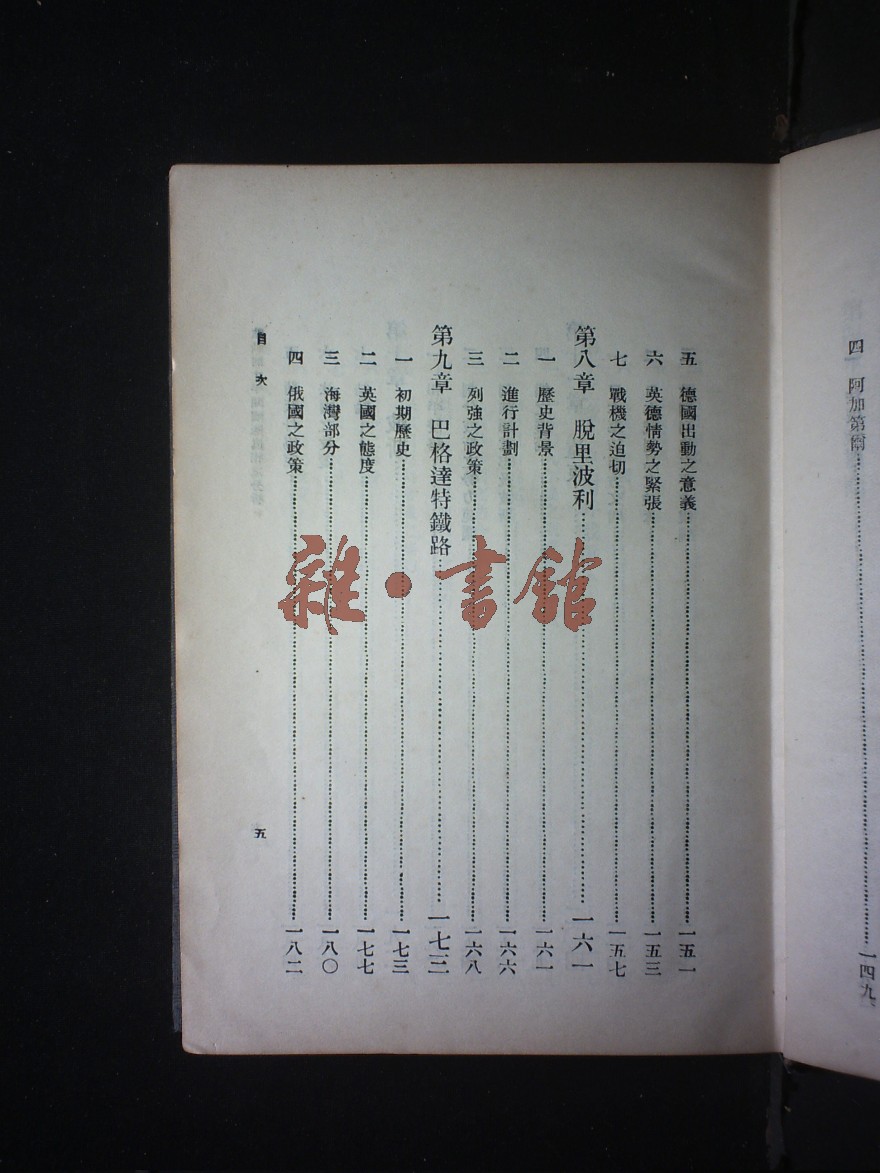 四　阿加第爾……一四九
五　德國出動之意義……一五一
六　英德情勢之緊張……一五三
七　戰機之迫切……一五七
第八章　脫里波利……一六一
一　歷史背景……一六一
二　進行計劃……一六六
三　列強之政策……一六八
第九章　巴格達特鐵路……一七三
一　初期歷史……一七三
二　英國之態度……一七七
三　海灣部分……一八〇
四　俄國之政策……一八二
目次　五
雜·書館